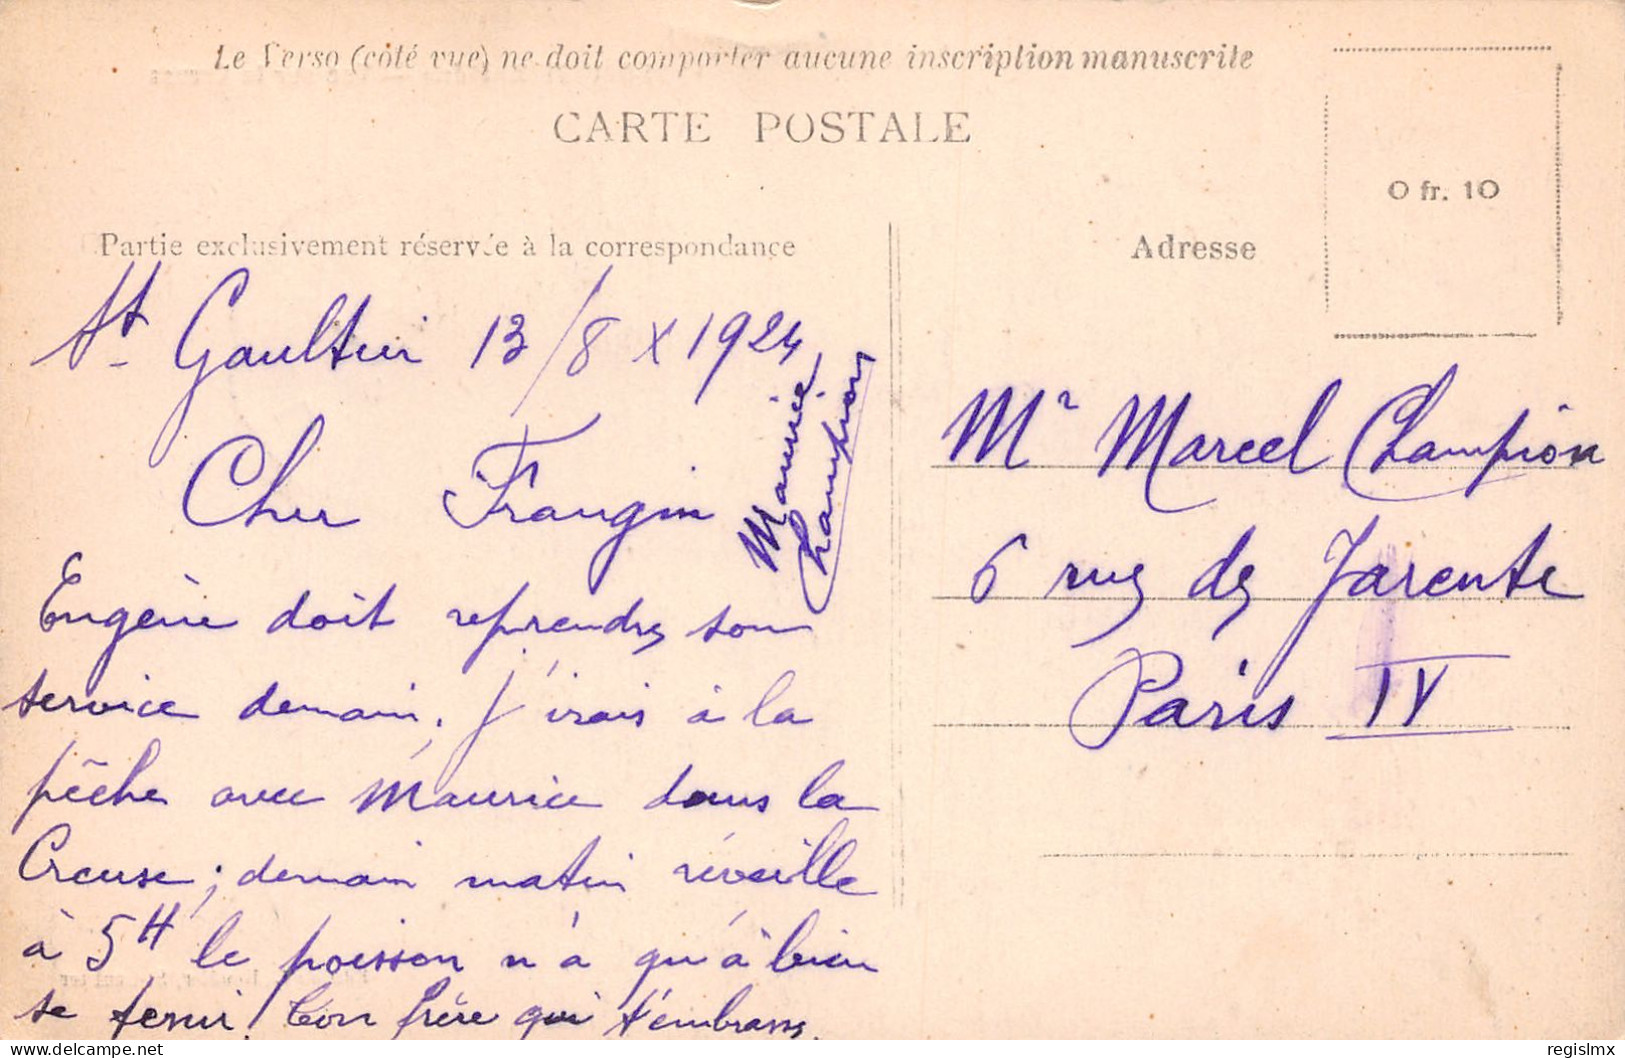 Le Verso (côté vue) ne doit comporter aucune inscription manuscrite
CARTE POSTALE
0 fr. 10
Partie exclusivement réservée à la correspondance
Adresse
St Gaultier 13/8 x 1924
Cher Frangin
Maurice
Champion
Eugène doit reprendre son
service demain. J'irais à la
pêche avec Maurice dans la
Creuse ; demain matin réveille
à 5H le poisson n'a qu'à bien
se tenir. Ton frère qui t'embrasse.
Mr Marcel Champion
6 rue de Jarente
Paris IV
regislmx